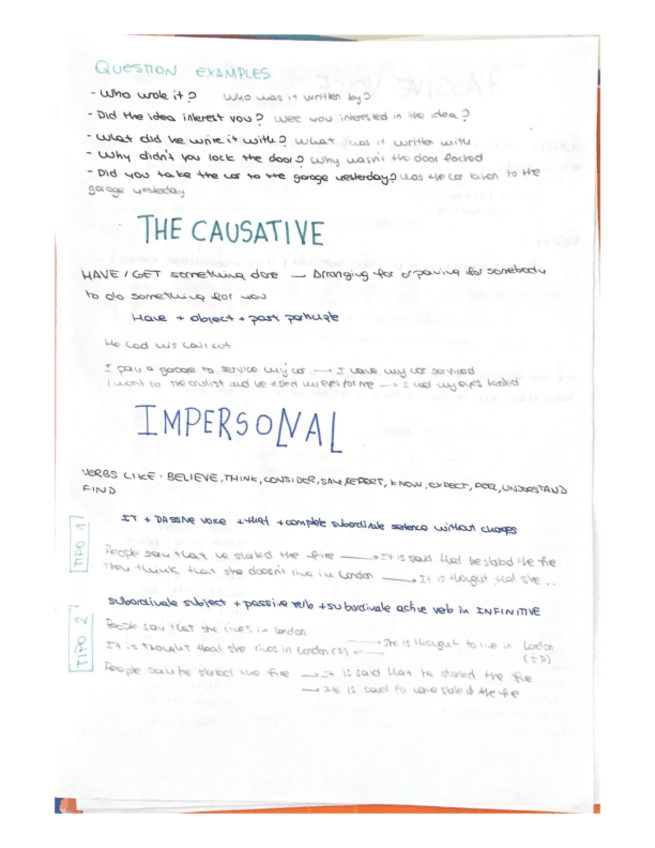 QUESTION EXAMPLES
- Who wrote it? Who was it written by?
- Did the idea interest you? Were you interested in the idea?
- What did he write it with? What was it written with
- Why didn't you lock the door? Why wasn't the door locked
- Did you take the car to the garage yesterday? Was the car taken to the
garage yesterday
THE CAUSATIVE
HAVE / GET something done — Arranging for or paying for somebody
to do something for you
Have + object + past participle
He had his
I pay a garage to service my car → I have my car serviced
I went to the and he my eyes for me → I had my eyes tested
IMPERSONAL
VERBS LIKE: BELIEVE, THINK, CONSIDER, SAY, REPORT, KNOW, EXPECT, FEEL, UNDERSTAND
FIND
TIPO 1
IT + PASSIVE VOICE + that + complete subordinate sentence without changes
People say that he started the fire → It is said that he started the fire
They think that she doesn't live in London → It is thought that she ..
TIPO 2
subordinate subject + passive verb + subordinate active verb in INFINITIVE
People say that she lives in London
It is thought that she lives in London → She is thought to live in London
People say he started the fire → It is said that he started the fire
→ He is said to have started the fire